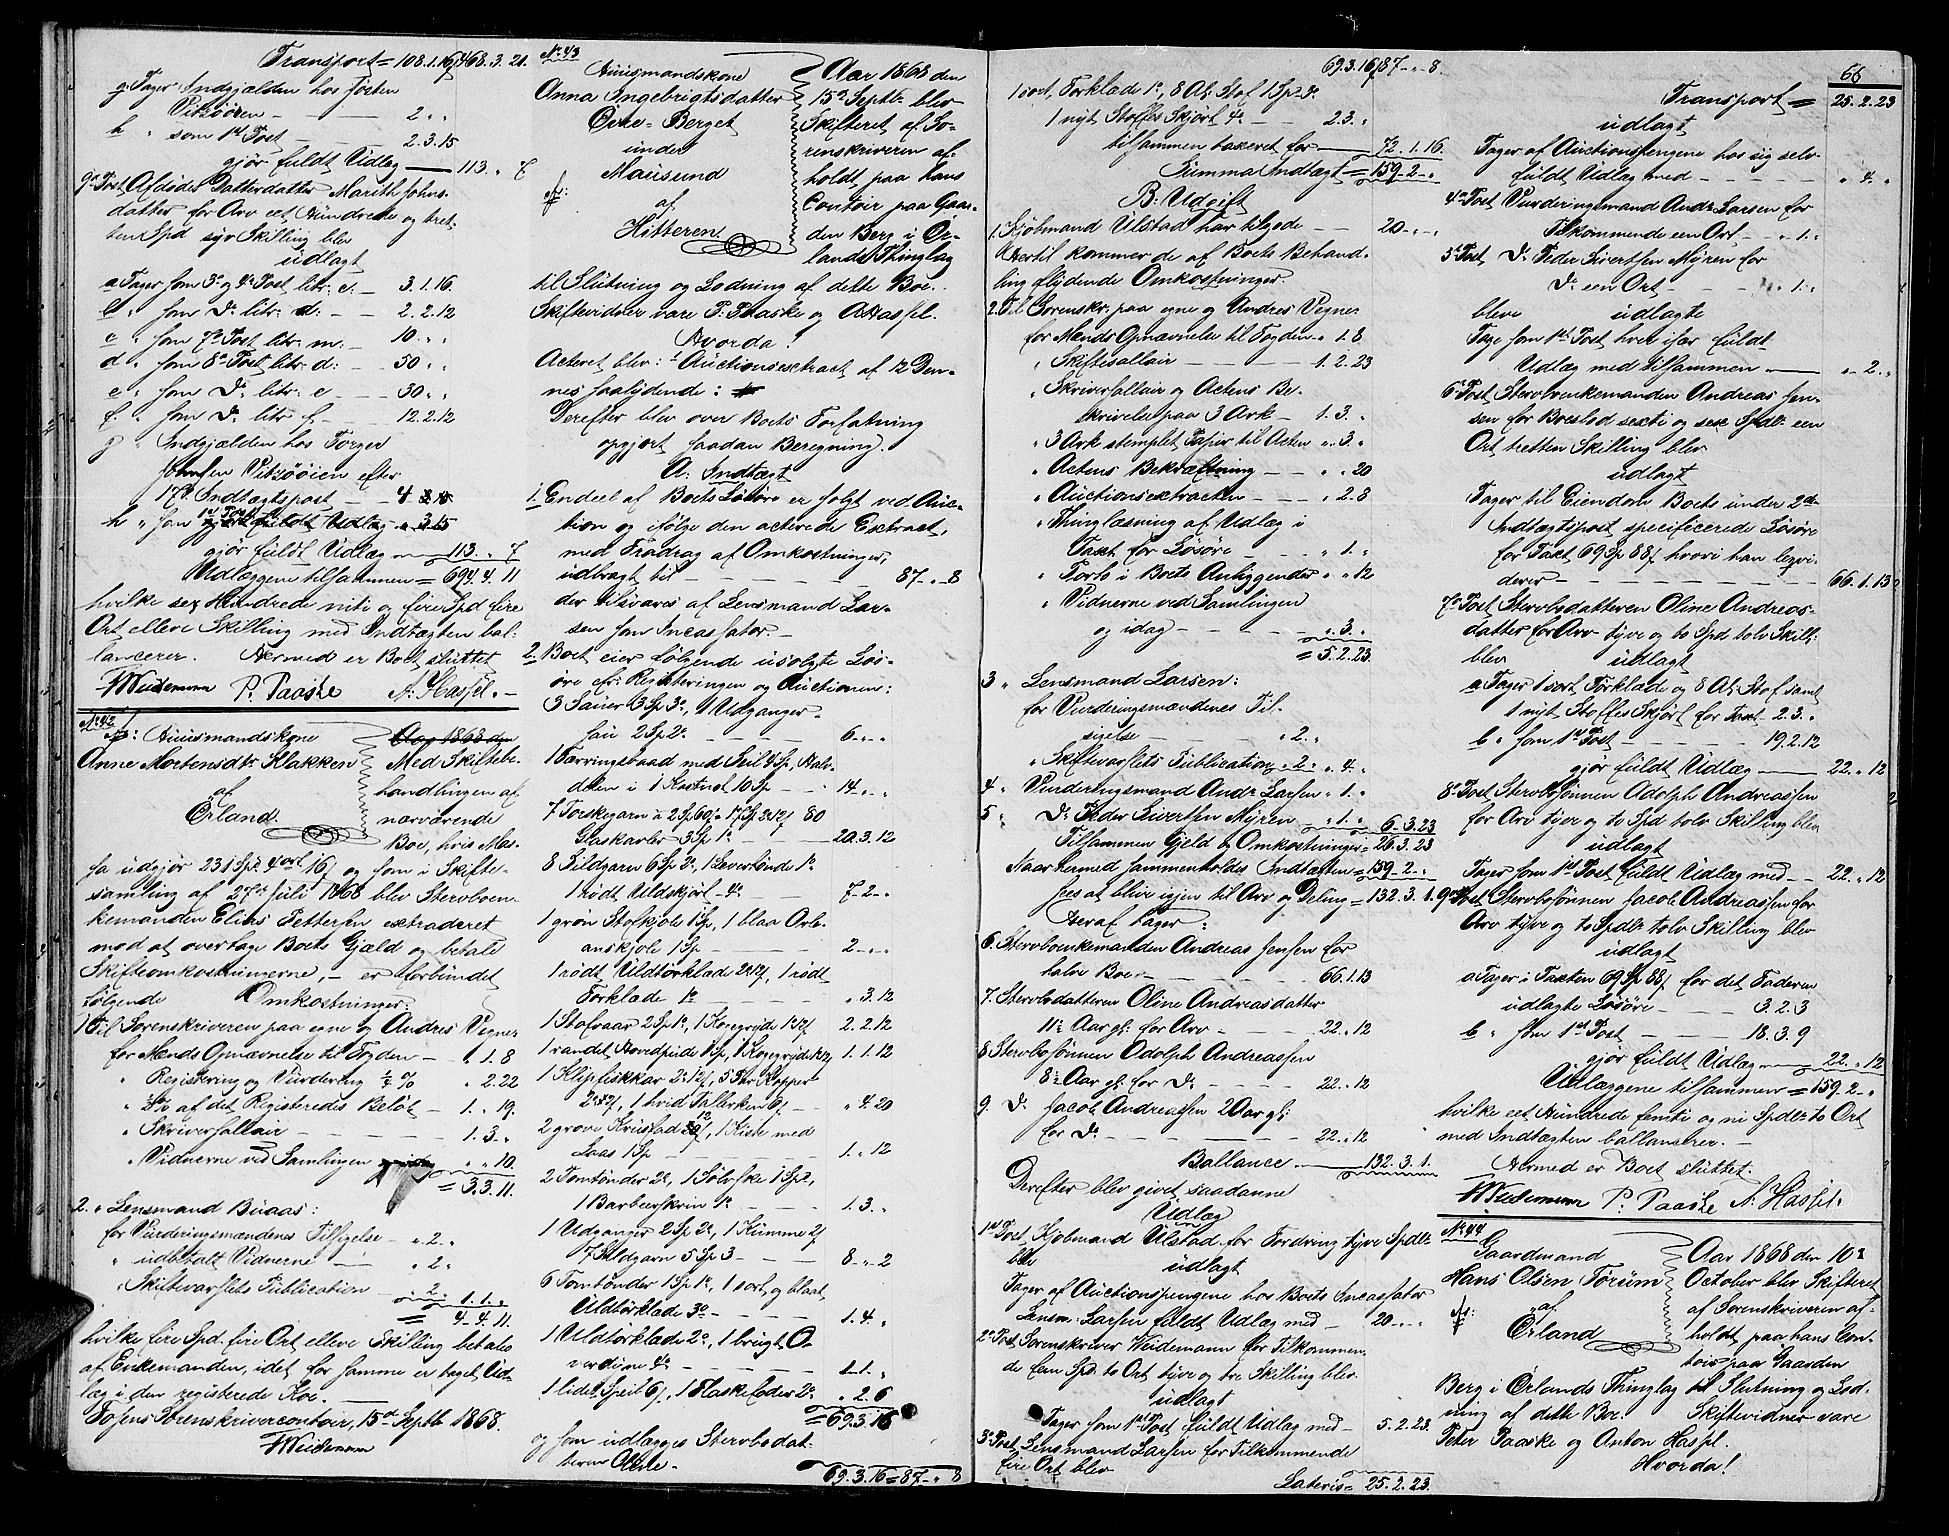 Transport = 108.1.16 468.3.21.
g. Tager Indgjælden hos Josten
Vitsöören — 2 " "
h " som 1st Post — 2.3.15
gjör fuldt Udlæg — 113. " 7
9de Post, Afdödes Datterdatter Marith Johns-
datter for Arv eet Hundrede og tret-
ten Spd syv Skilling blev
udlagt
a Tager som 3die og 4de Post litr. c. — 3.1.16.
" som Do litr. d. — 2.2.12
c " som 7de Post litr. m. — 10. " "
d " som 8de Post litr. d. — 50 " "
e " som Do litr. e — 30 " "
f. " som Do litr. f. — 12.2.12
g " Indgjælden hos Torger
Johnsen Vitsööien efter
17de Indtægtspost —
h " som 1st Post
gjör fuldt Udlæg — 113. " 7
Udlæggene tilsammen = 694.4.11
hvilke sex Hundrede niti og fire Spd fire
Ort elleve Skilling med Indtægten bal-
lancerer. Hermed er Boet sluttet
Weidemann P. Paaske A. Hassel. —
No 42
Huusmandskone
Anne Mortensdtr Klakken
af
Örland.
Aar 1868 den
Med Skiftebe-
handlingen af
nærværende
Boe, hvis Mas-
sa udgjör 231 Spd. 4 ort 16 s og som i Skifte-
samling af 27de Juli 1868 blev Stervboen-
kemanden Elias Pettersen extraderet
mod at overtage Boets Gjæld og betale
Skifteomkostningerne, — er forbundet
fölgende Omkostninger:
1 Til Sorenskriveren paa egne og Andres Vegne
for Mænds Opnævnelse til Fogden — 1.1.8
" Registering og Vurdering ½ % " 2.22
" af det Registeredes Belöb — 1. " 19.
" Skriversallair — 1.3 "
" Vidnerne ved Samlingen " " 10.
= 3.3.11.
2. " Lensmand Buaas:
for Vurderingsmændenes Tilsigelse — " 2 "
" udbetalt Vidnerne — " 2 "
" Skiftevarslets Publication — " 2 " 1.1. "
= 4.4.11.
hvilke fire Spd. fire Ort elleve Skilling betales
af Enkemanden, idet for samme er taget Ud-
læg i den registerede Koe. —
Fosens Sorenskrivercontoir, 15de Septb 1868.
Weidemann
No 43
Huusmandskone
Anna Ingebrigtsdatter
Övre-Berget
under
Mausund
af
Hitteren.
Aar 1868 den
15de Septb. blev
Skifteret af So-
renskriveren af-
holdt paa hans
Contoir paa Gaar-
den Berg i Ör-
lands Thinglag
til Slutning og Lodning af dette Boe.
Skiftevidner vare P. Paaske og A Hassel.
Hvorda!
Acteret blev: 1 Auctionsextract af 12 Den-
nes saalydende:
Derefter blev over Boets Forfatning
opgjort saadan Beregning.
A. Indtægt
1. Endeel af Boets Lösöre er solgt ved Auc-
tion og ifölge den acterede Extract,
med Fradrag af Omkostninger,
udbragt til — 87. " 8
der tilsvares af Lensmand Lar-
sen som Incassator. —
2. Boet eier fölgende usolgte Lös-
öre efr. Registeringen og Auctionen:
3 Sauer 3 Sp 3o, 1 Udganger-
sau 2 Sp 2o. — 6. " "
1 Færringsbaad med Seil 4 Sp, Halv-
delen i 1 Kastnot 10 Sp — 14. " "
7 Torskegarn a 2 Sp 60 s — 17 Sp 2o 12 s 80
Glaskavler 3 Sp 1o — 20.3.12
8 Sildgarn 6 Sp 3o, 1 Levertönde 1o
1 rödt Uldskjört 4o — 7.2. "
1 grön Stofkjole 1 Sp, 1 blaa Orle-
anskjole 1 Sp — 2. " "
1 rödt Uldtörklade 2o 12 s, 1 rödt
Forklade 1o — " 3.12
1 Stofvaar 2 Sp 1o, 1 Kogegryde 1o 12 s 2.2.12
1 randet Hovedpude 1 Sp, 1 Kogegryde 1o 12 s 1.1.12
1 Klipfiskkar 2o 12 s, 5 Par Kopper
2o 2 s, 1 hvid Tallerken 6 s — " 4.20
2 grove Krustad, 1 Kiste med
Laas 1 Sp — 1. " 12
2 Tomtönder 2o, 1 Sölvske 1 Sp,
1 Barbeerskrin 1o — 1.3. "
1 Udganger 2 Sp 2o, 1 Kumme 2 s
7 Sildgarn 5 Sp 3 — 8. " 2
6 Tomtönder 1 Sp 1o, 1 sort og blaat
Uldtörklade 3o — 1.4. "
1 Uldtörklade 2o, 1 brugt O-
verdüne 4o — 1.1. "
1 lidet Speil 6 s, 1 Flaskefoder 2o " 2.6
= 69.3.16
og som udlægges Stervbodat-
teren Oline —
69.3.16 = 87. " 8
69.3.16 87. " 8.
1 sort Forklade 1o, 8 Al. Stof 1 Sp 4o
1 nyt Stoffes Skjört 4o — 2.3. "
tilsammen taxeret for — 72.1.16.
Summa Indtægt = 159.2. "
B. Udgift
1. Kjöbmand Ulstad har tilgode — 20. " "
Hertil kommer de af Boets Behand-
ling flydende Omkostninger.
2. Til Sorenskr. paa egne og Andres Vegne
for Mænds Opnævnelse til Fogden " 1.8
" Skiftesallair — 1.2.23
" Skriversallair og Actens Be-
skrivelse paa 3 Ark — 1.3. "
" 3 Ark stemplet Papir til Acten " 3. "
" Actens Bekræftning — " " 20
" Auctionsextracten — " 2.8
" Thinglæsning af Udlæg i
Taxt for Lösöre — " 1. "
" Porto i Boets Anliggender " " 12
" Vidnerne ved Samlingen
og idag — " 3. "
= 5.2.23.
3 " Lensmand Larsen:
for Vurderingsmændenes Til-
sigelse — " 2. "
" Skiftevarslets Publication " 2. " " 4. "
4 " Vurderingsmand Andr. Larsen " 1. "
5 " Do Peder Sivertsen Myren — " 1. " 6.3.23
Tilsammen Gjeld & Omkostninger = 26.3.23
Naar hermed sammenholdes Indtægten = 159.2. "
sees at blive igjen til Arv og Deling = 132.3.1.
Heraf tager:
6. Stervboenkemanden Andreas Jensen for
halve Boe — 66.1.13
7. Stervbodatteren Oline Andreasdatter
11½ Aar gl. for Arv — 22. " 12
8 Stervbosönnen Adolph Andreassen
8½ Aar gl. for Do — 22. " 12
9. Do Jacob Andreassen 2 Aar gl.
for Do — 22. " 12
Ballance — 132.3.1.
Derefter blev givet saadanne
Udlæg
1st Post, Kjöbmand Ulstad for Fordring tyve Spdlr
blev udlagt
Tager af Auctionspengene hos Boets Incassator
Lensm. Larsen fuldt Udlæg med — 20. " "
2de Post Sorenskriver Weidemann for Tilkommen-
de fem Spd. to Ort tyve og tre Skilling blev
udlagt
Tager som 1st Post fuldt Udlæg med — 5.2.23
3de Post Lensmand Larsen for Tilkommende
fire Ort blev
Lateris = 25.2.23.
66
Transport = 25.2.23
udlagt
Tager af Auctionspengene hos sig selv
fuldt Udlæg med — " 4. "
4de Post Vurderingsmand Andr. Larsen for
Tilkommende een Ort — " 1. "
5te Post, Do Peder Sivertsen Myren for
Do een Ort — " 1. "
bleve udlagte
Tage som 1st Post hver især fuldt
Udlæg med tilsammen — " 2. "
6te Post Stervboenkemanden Andreas Jen-
sen for Boeslod sexti og sex Spdlr een
Ort tretten Skilling blev
udlagt
Tager til Eiendom Boets under 2den
Indtægtspost specificerede Lösöre
for Taxt 69 Sp 88 s, hvori han legvi-
derer — 66.1.13
7de Post Stervbodatteren Oline Andreas-
datter for Arv tyve og to Spd tolv Skill.
blev udlagt
a Tager 1 sort Forklade og 8 Al. Stof samt
1 nyt Stoffes Skjört for Taxt 2.3. "
b " som 1st Post — 19.2.12
gjör fuldt Udlæg — 22. " 12
8de Post Stervbosönnen Adolph Andreassen
for Arv tyve og to Spd tolv Skilling blev
udlagt
Tager som 1st Post fuldt Udlæg med — 22. " 12
9de Post Stervbosönnen Jacob Andreassen for
Arv tyve og to Spdlr tolv Skilling blev
udlagt
a Tager i Taxten 69 Sp 88 s for det Faderen
udlagte Lösöre — 3.2.3
b " som 1st Post — 18.3.9
gjör fuldt Udlæg — 22. " 12
Udlæggene tilsammen = 159.2. "
hvilke eet Hundrede femti og ni Spdlr to Ort
med Indtægten ballancerer. —
Hermed er Boet sluttet.
Weidemann P. Paaske A. Hassel.
No 44
Gaardmand
Hans Olsen Förum
af
Örland
Aar 1868 den 10de
October blev Skifteret
af Sorenskriveren af-
holdt paa hans Con-
toir paa Gaarden
Berg i Örlands Thinglag til Slutning og Lod-
ning af dette Boe. Skiftevidner vare
Peter Paaske og Anton Hassel.
Hvorda!